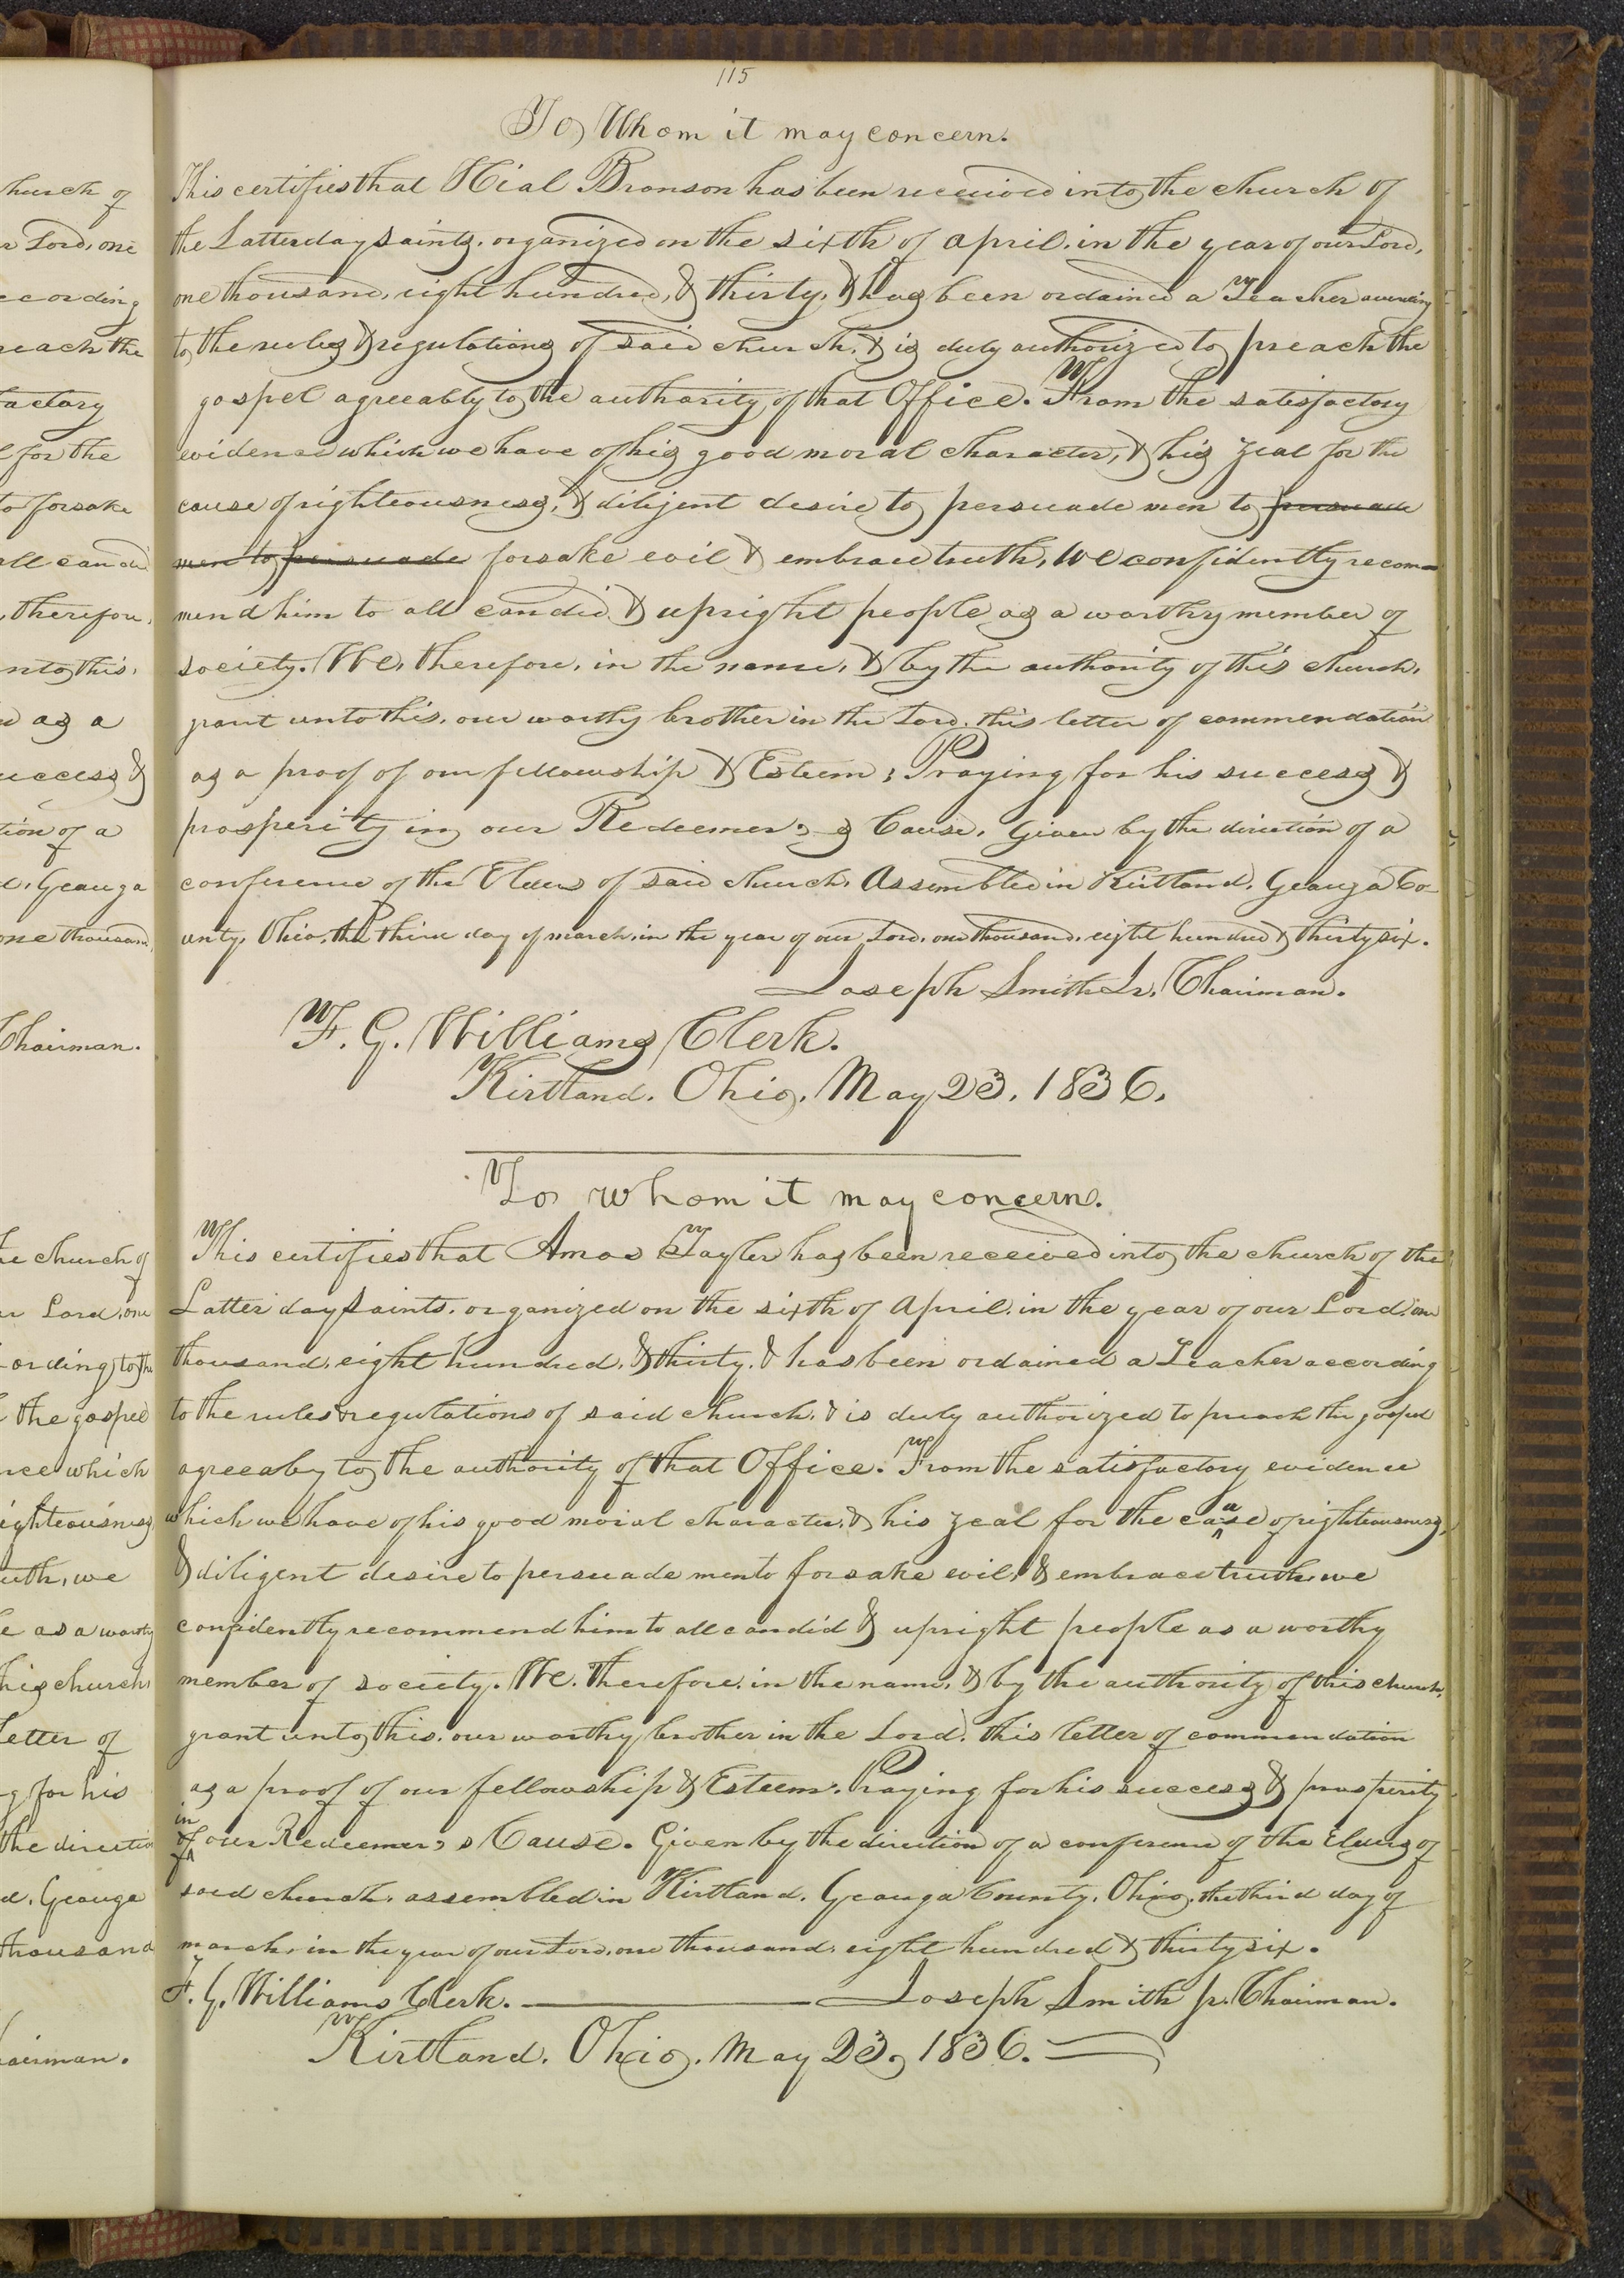 115
hurch of
r Lord, one
ccording
reach the
factory
l for the
to forsake
all candid
, therefore,
nto this,
n as a
uccess &
tion of a
d, Geauga
one thousand,
Chairman.
he church of
ur Lord, one
cording to the
the gospel
nce which
ighteousness
uth, we
le as a worthy
his church
letter of
g for his
the direction
d, Geauga
thousand
hairman.
To Whom it may concern.
This certifies that Hial Bronson has been received into the church of
the Latter day saints, organized on the sixth of april, in the year of our Lord,
one thousand, eight hundred, & thirty, & has been ordained a Teacher according
to the rules & regulations of said church, & is duly authorized to preach the
gospel agreeably to the authority of that Office. From the satisfactory
evidence which we have of his good moral character, & his zeal for the
cause of righteousness, & diligent desire to persuade men to persuade
men to persuade forsake evil & embrace truth, We confidently recom=
mend him to all candid & upright people as a worthy member of
society. We, therefore, in the name, & by the authority of this church,
grant unto this, our worthy brother in the Lord, this letter of commendation
as a proof of our fellowship & Esteem; Praying for his success &
prosperity in our Redeemer,s Cause. Given by the direction of a
conference of the Elders of said church, Assembled in Kirtland, Geauga Co-
unty, Ohio, the third day of march, in the year of our Lord, one thousand, eight hundred & thirty six.
Joseph Smith Jr. Chairman.
F. G. Williams Clerk.
Kirtland. Ohio. May 23. 1836.
To whom it may concern.
This certifies that Amos Tayler has been received into the church of the
Latter day Saints, organized on the sixth of April, in the year of our Lord, one
thousand, eight hundred, & thirty, & has been ordained a Teacher according
to the rules & regulations of said church, & is duly authorized to preach the gospel
agreeaby to the authority of that Office. From the satisfactory evidence
which we have of his good moral character, & his zeal for the cause of righteousness,
& diligent desire to persuade men to forsake evil, & embrace truth, we
confidently recommend him to all candid & upright people as a worthy
member of society. We, therefore, in the name, & by the authority of this church,
grant unto this, our worthy brother in the Lord, this letter of commendation
as a proof of our fellowship & Esteem. Praying for his success & prosperity
in
of our Redeemer,s Cause. Given by the direction of a conference of the Elders of
said church, assembled in Kirtland, Geauga County, Ohio, the third day of
march, in the year of our Lord, one thousand, eight hundred & thirty six.
F. G. Williams Clerk. Joseph Smith jr. Chairman.
Kirtland. Ohio. May 23, 1836.